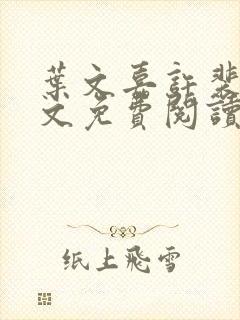 葉文喜許裴
文免費閱讀
纸上飛雪